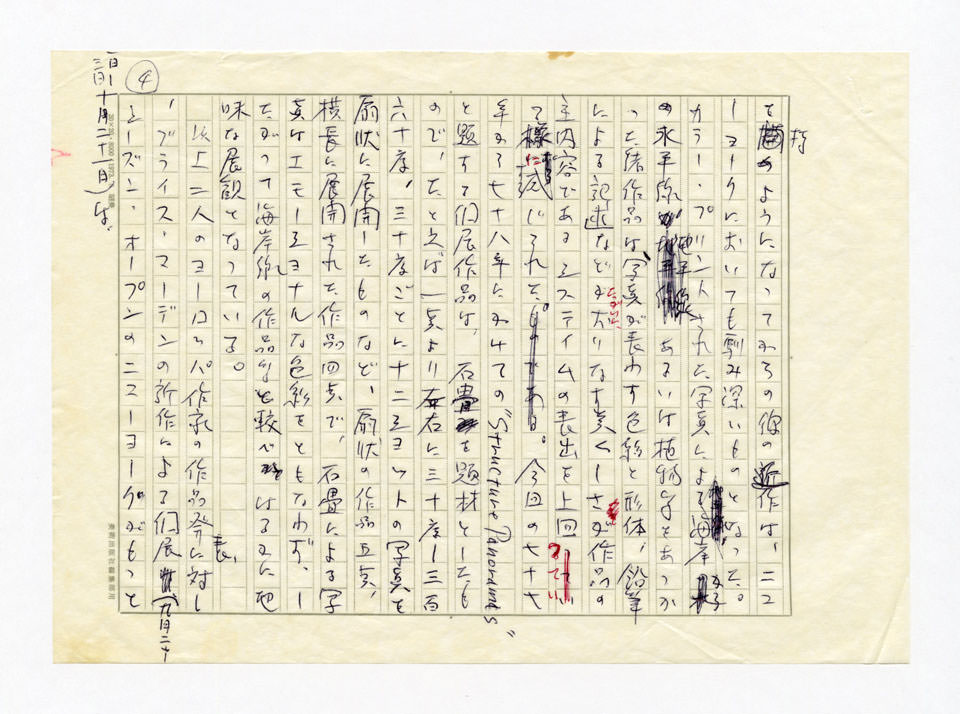 ④
を持つようになってからの彼の近作は、ニュ
ーヨークにおいても馴み深いものとなった。
カラー・プリントされた写真による海岸
の水平線 あるいは植物などをあつか
った諸作品は、写真が表わす色彩と形体、鉛筆
による記述などがたがいに おりなす美くしさが作品の
主内容であるシステイムの表出を上回って
様に感じられた。今回の七十七
年から七十八年にかけての"Structure Panoramas"
と題する個展作品は、石畳を題材としたも
ので、たとえば一点より左右に三十度—三百
六十度、三十度ごとに十二ショットの写真を
扇状に展開したものなど、扇状の作品五点、
横長に展開された作品四点で、石畳による写
真はエモーショナルな色彩をともなわず、し
たがって海岸線の作品などと較べはるかに地
味な展観となっている。
以上二人のヨーロッパ作家の作品発表に対し
、ブライス・マーデンの新作による個展(九月二十
三日—十月二十一日)は、
シーズン・オープンのニューヨークがもっと